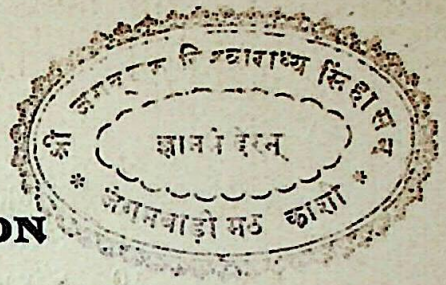 श्री जगद्गुरु विश्वाराध्य सिंहासन
* जंगमवाड़ी मठ काशी *
ON